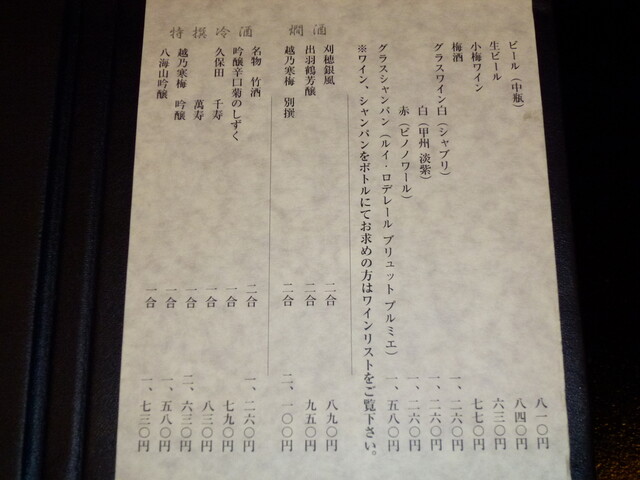 ビール（中瓶） 八一〇円
生ビール 八四〇円
小梅ワイン 六三〇円
梅酒 七七〇円
グラスワイン白（シャブリ） 一、二六〇円
白（甲州 淡紫） 一、二六〇円
赤（ピノノワール） 一、二六〇円
グラスシャンパン（ルイ・ロデレール ブリュット プルミエ） 一、五八〇円
※ワイン、シャンパンをボトルにてお求めの方はワインリストをご覧下さい。
燗酒
刈穂銀風 二合 八九〇円
出羽鶴芳醸 二合 九五〇円
越乃寒梅 別撰 二合 二、一〇〇円
特撰冷酒
名物 竹酒 二合 一、二六〇円
吟醸辛口菊のしずく 一合 七九〇円
久保田 千寿 一合 八三〇円
萬寿 一合 二、六三〇円
越乃寒梅 吟醸 一合 一、五八〇円
八海山吟醸 一合 一、七三〇円